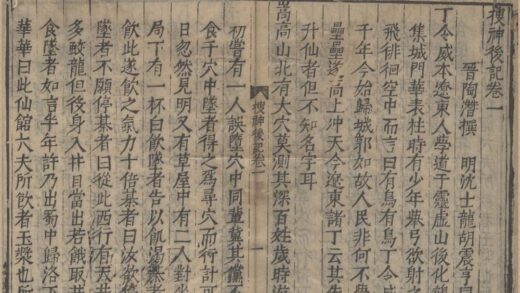 搜神後記卷一
晉陶潛撰 明沈士龍胡震亨同
丁令威本遼東人學道于靈虛山後化鶴
集城門華表柱時有少年舉弓欲射之
飛徘徊空中而言曰有鳥有鳥丁令威
千年今始歸城郭如故人民非何不學
壘壘遂高上沖天今遼東諸丁云其先
升仙者但不知名字耳
嵩高山北有大穴莫測其深百姓歲時遊
搜神後記卷一 一
初嘗有一人誤墮穴中同輩冀其儻不
食于穴中墜者得之為尋穴而行計可
日忽然見明又有草屋中有二人對坐
局下有一杯白飲墜者告以飢渴棊者
飲此遂飲之氣力十倍棊者曰汝欲停
墜者不願停棊者曰從此西行有天井
多蛟龍但投身入井自當出若餓取井
食墜者如言半年許乃出蜀中歸洛下
華華曰此仙館大夫所飲者玉漿也所